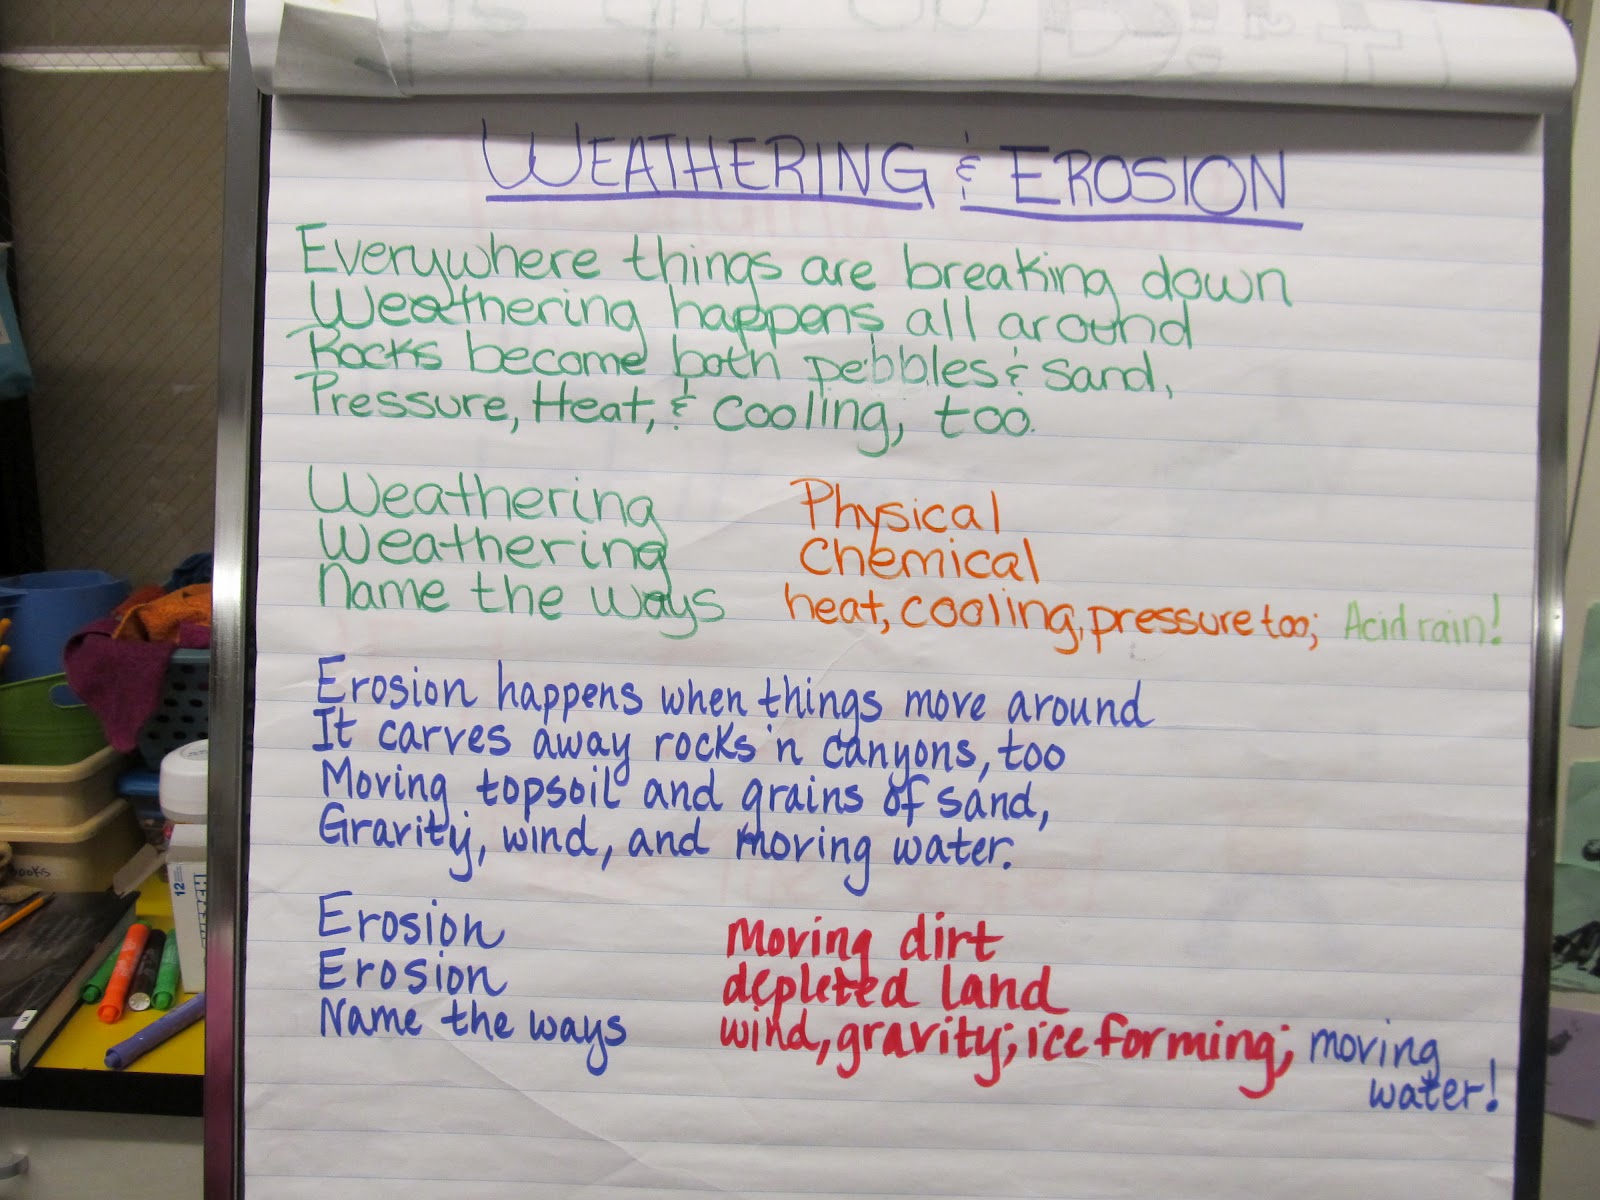 WEATHERING & EROSION
Everywhere things are breaking down
Weathering happens all around
Rocks become both pebbles & sand,
Pressure, Heat, & cooling, too.
Weathering Physical
Weathering Chemical
Name the ways heat, cooling, pressure too; Acid rain!
Erosion happens when things move around
It carves away rocks 'n canyons, too
Moving topsoil and grains of sand,
Gravity, wind, and moving water.
Erosion Moving dirt
Erosion depleted land
Name the ways wind, gravity; ice forming; moving
water!
12
books